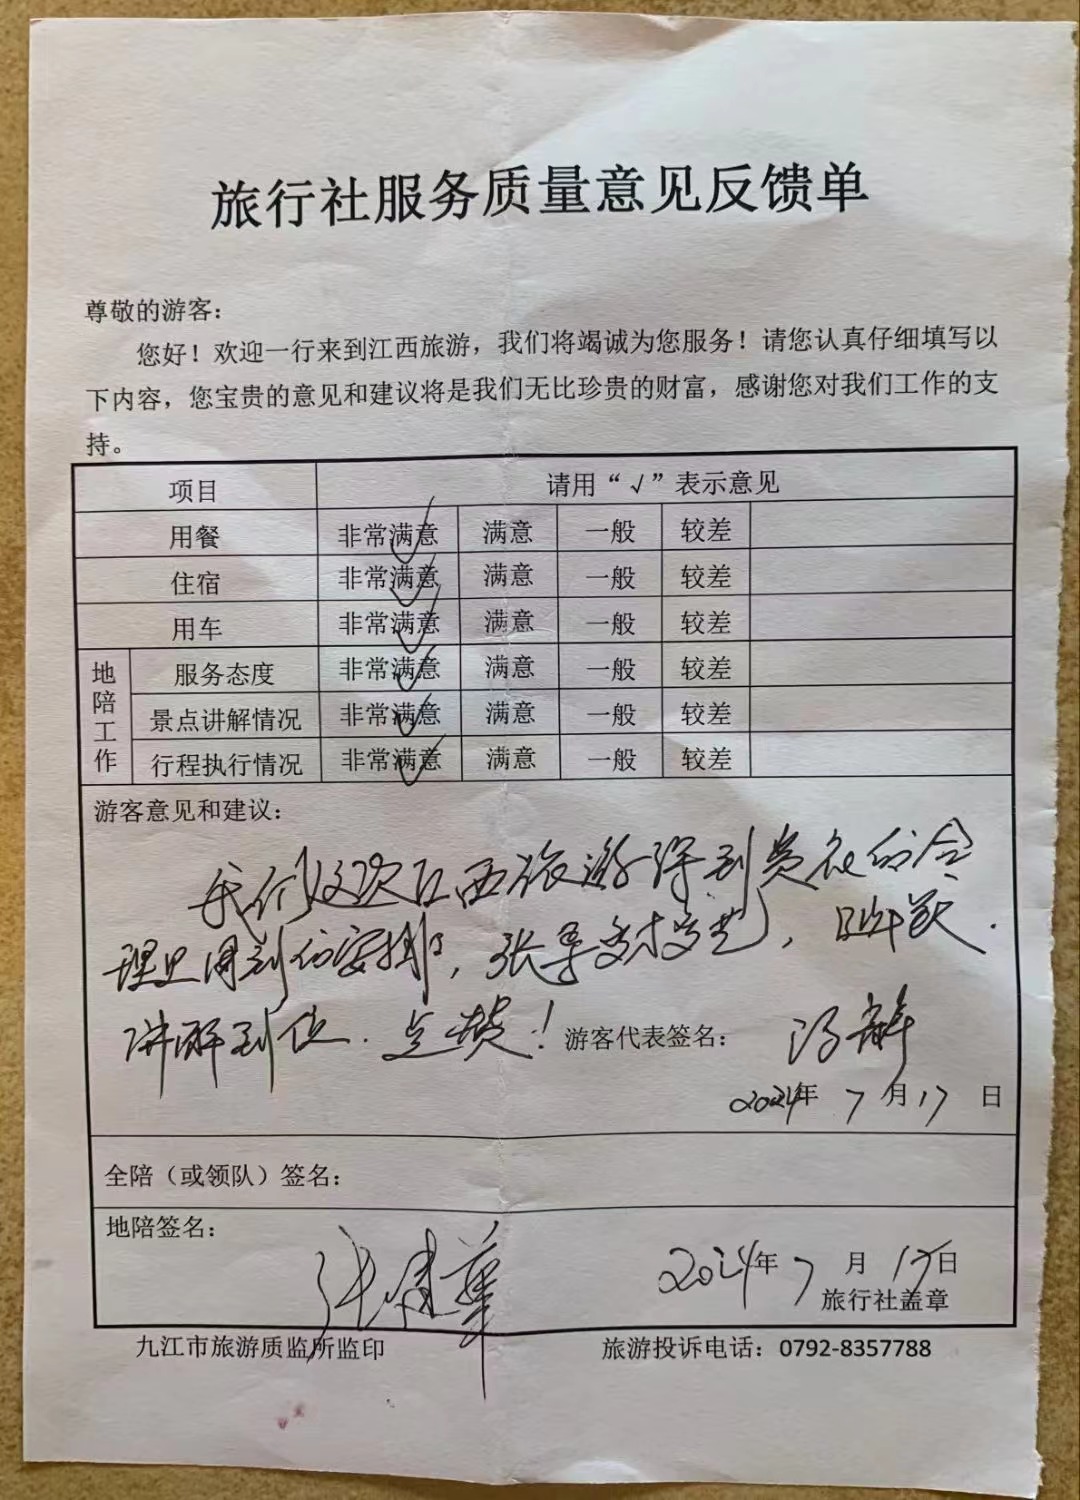 旅行社服务质量意见反馈单
尊敬的游客：
您好！欢迎一行来到江西旅游，我们将竭诚为您服务！请您认真仔细填写以
下内容，您宝贵的意见和建议将是我们无比珍贵的财富，感谢您对我们工作的支
持。
项目 请用“√”表示意见
用餐 非常满意 √ 满意 一般 较差
住宿 非常满意 √ 满意 一般 较差
用车 非常满意 √ 满意 一般 较差
地陪工作
服务态度 非常满意 √ 满意 一般 较差
景点讲解情况 非常满意 √ 满意 一般 较差
行程执行情况 非常满意 √ 满意 一般 较差
游客意见和建议：
我们这次江西旅游得到贵社的合
理且周到的安排，张导多才多艺，
讲解到位.点赞！游客代表签名：
2024年7月17日
全陪（或领队）签名：
地陪签名：
张建华 2024年7月17日
旅行社盖章
九江市旅游质监所监印 旅游投诉电话：0792-8357788